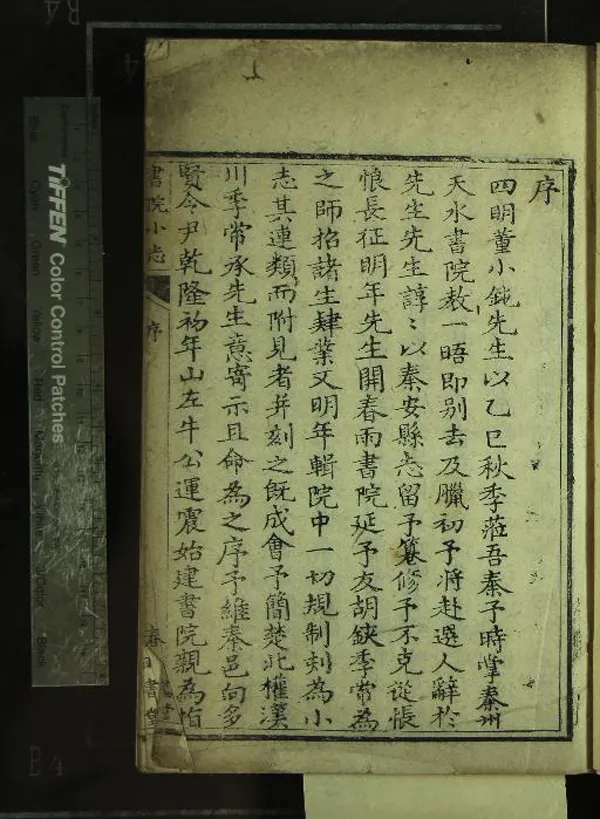 序
四明董小鈍先生以乙巳秋季蒞吾秦予時掌秦州
天水書院敎一晤即别去及臘初予将赴選人辭於
先生先生諄〻以秦安縣志留予纂修予不克從悵
悵長征明年先生開春雨書院延予友胡鋏季常為
之師招諸生肄業又明年輯院中一切規制刻為小
志其連類而附見者并刻之旣成會予簡楚北權漢
川季常承先生意寄示且命為之序予維秦邑向多
賢令尹乾隆初年山左牛公運震始建書院親為指
書院小志
序
春雨書堂
TIFFEN Color Control Patches
Blue
Cyan
Green
Yellow
Red
Magenta
Black
R4
B4
4